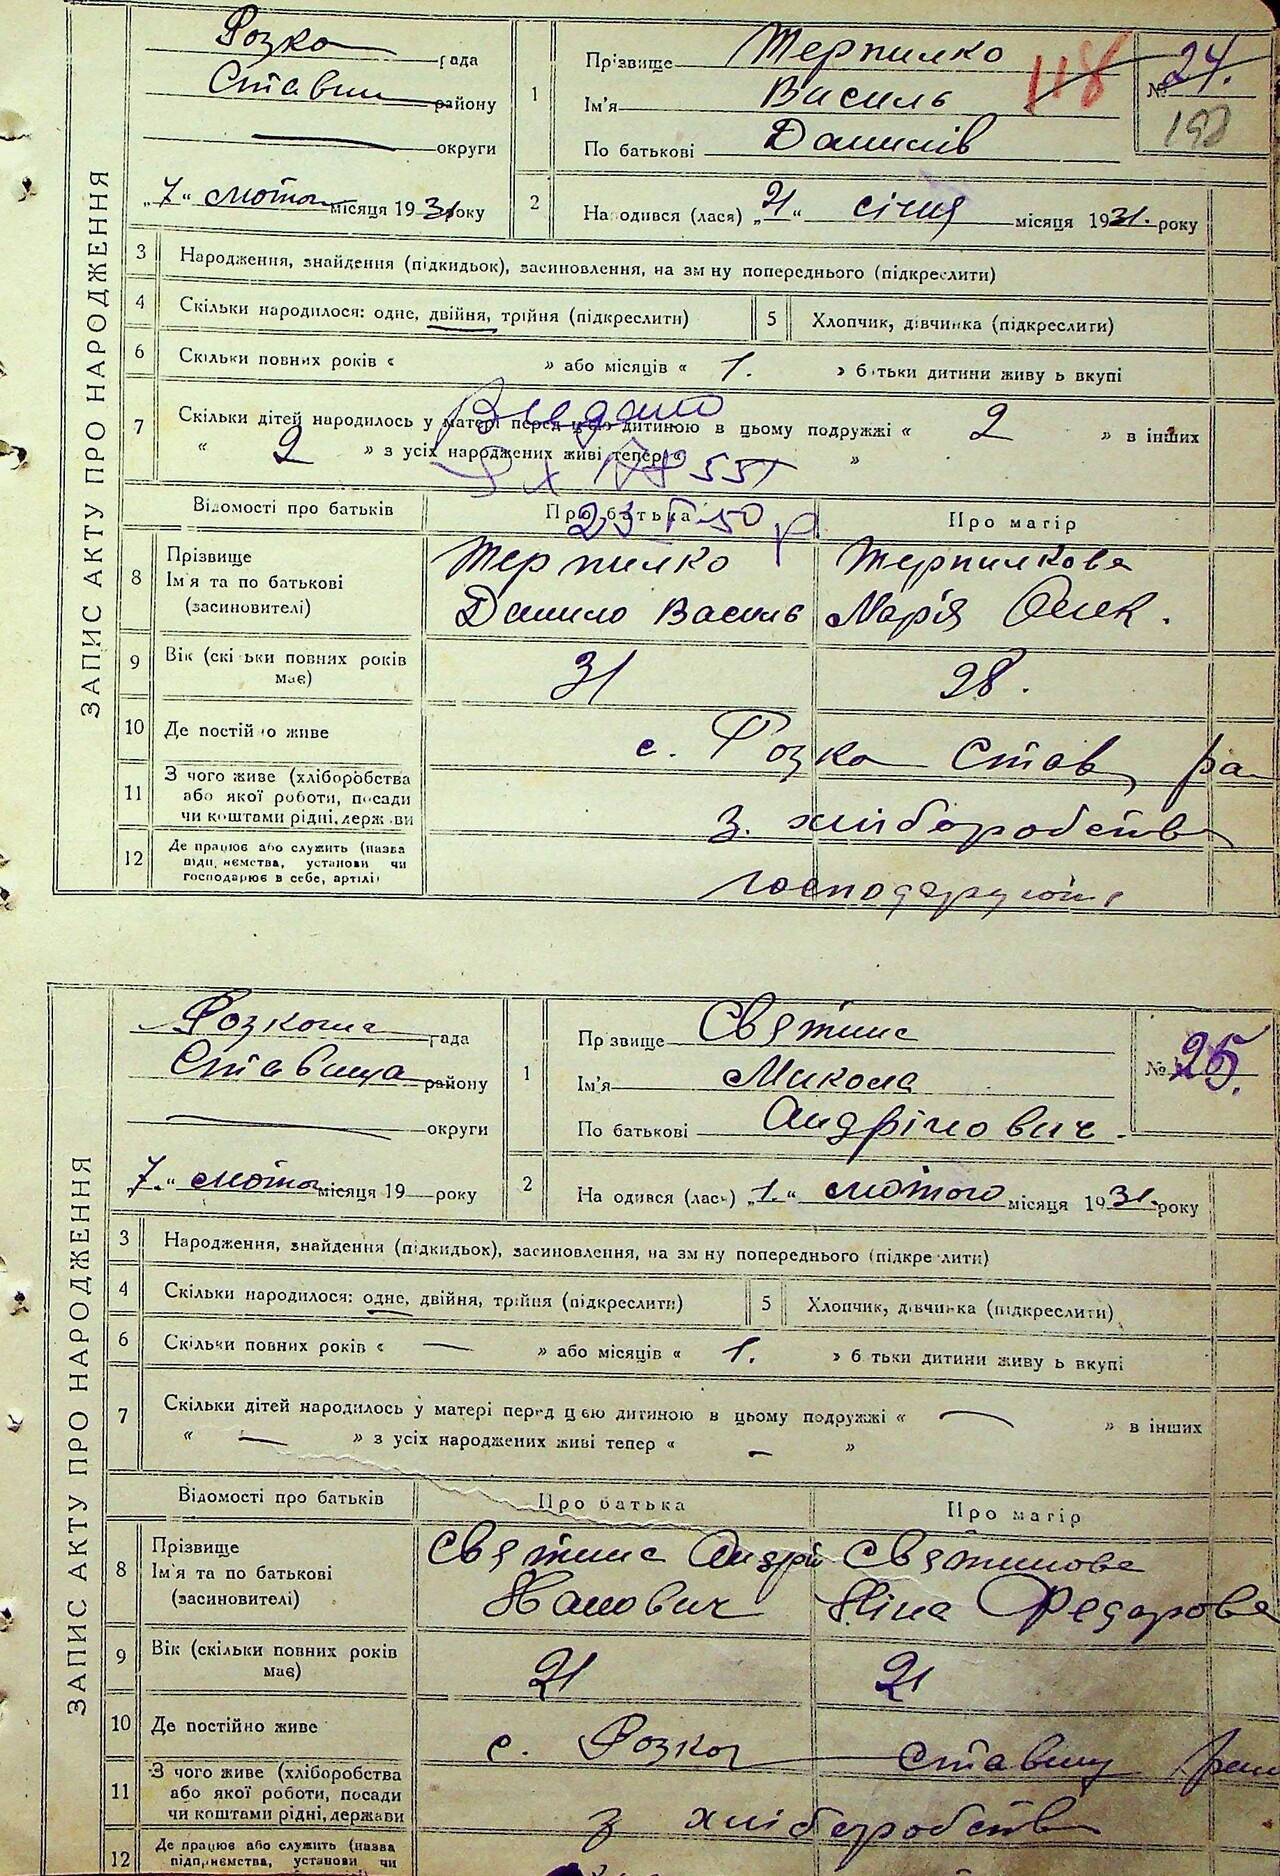 ЗАПИС АКТУ ПРО НАРОДЖЕННЯ
Розка рада
Ставищ району
округи
„7“ лютого місяця 1931 року
1
Прізвище Терпилко
Ім'я Василь
По батькові Данилів
118
№ 24.
198
2
Народився (лася) „21“ січня місяця 1931. року
3 Народження, знайдення (підкидьок), засиновлення, на зм ну попереднього (підкреслити)
4 Скільки народилося: одне, двійня, трійня (підкреслити)
5 Хлопчик, дівчинка (підкреслити)
6 Скільки повних років « » або місяців « 1. » б тьки дитини живу ь вкупі
7 Скільки дітей народилось у матері перед цією дитиною в цьому подружжі « 2 » в інших
« 2 » з усіх народжених живі тепер « »
Видано
23 50 р
Відомості про батьків Про батька Про матір
8 Прізвище
Ім'я та по батькові
(засиновителі)
Терпилко
Данило Василь
Терпилкова
Марія Олек.
9 Вік (скі ьки повних років
має)
31 28.
10 Де постій о живе
с. Розка Став ра
11 З чого живе (хліборобства
або якої роботи, посади
чи коштами рідні, держ ви
з. хліборобства
12 Де працює або служить (назва
підп, иємства, установи чи
господарює в себе, артілі)
господарують
ЗАПИС АКТУ ПРО НАРОДЖЕННЯ
рада
Ставища району
округи
„7.“ лютого місяця 19 року
1
Пр звище Святина
Ім'я Микола
По батькові Андрійович.
№ 25.
2
На одився (лась) „1.“ лютого місяця 1931. року
3 Народження, знайдення (підкидьок), засиновлення, на зм ну попереднього (підкре лити)
4 Скільки народилося: одне, двійня, трійня (підкреслити)
5 Хлопчик, дівчинка (підкреслити)
6 Скільки повних років « — » або місяців « 1. » б тьки дитини живу ь вкупі
7 Скільки дітей народилось у матері перед цією дитиною в цьому подружжі « — » в інших
« — » з усіх народжених живі тепер « — »
Відомості про батьків Про батька Про матір
8 Прізвище
Ім'я та по батькові
(засиновителі)
Святина Андрій
Святинова
Ніна Федорова
9 Вік (скільки повних років
має)
21 21
10 Де постійно живе
с. Розка Ставищ
11 З чого живе (хліборобства
або якої роботи, посади
чи коштами рідні, держави
з хліборобства
12 Де працює або служить (назва
підприємства, установи чи